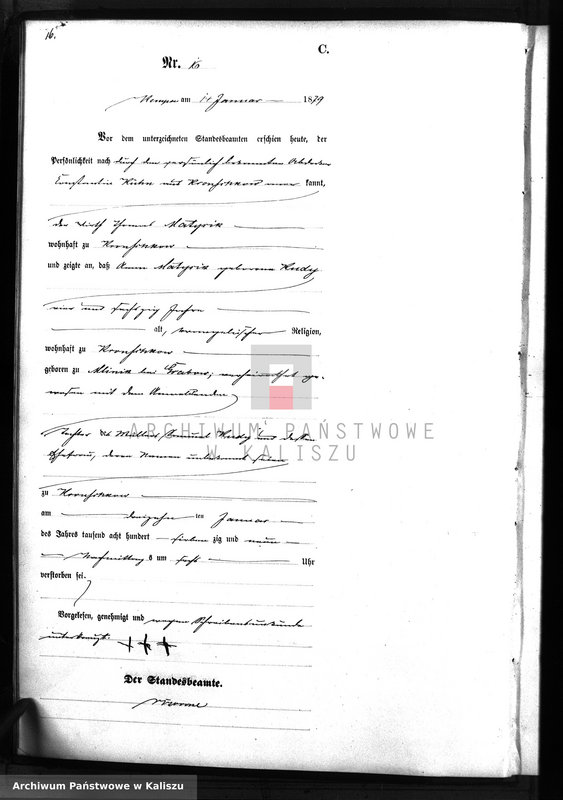 16.
C.
Nr. 16
Kempen am 14 Januar 1879
Vor dem unterzeichneten Standesbeamten erschien heute, der
Persönlichkeit nach durch den persönlich bekannten
Constantin und kannt,
der Wirth Thomas Matysik
wohnhaft zu
und zeigte an, daß Anna Matysik geborene Kudy
vier und sechszig Jahre
alt, evangelischer Religion,
wohnhaft zu
geboren zu Mlinik bei Grabow, verheirathet ge-
wesen mit dem Anmeldenden
Tochter des Müllers Samuel Kudy und dessen
Ehefrau, deren Namen unbekannt seien
zu
am dreizehn ten Januar
des Jahres tausend acht hundert sieben zig und neun
Nachmittags um sechs Uhr
verstorben sei.
Vorgelesen, genehmigt und wegen Schreibensunkunde
unterkreuzt +++
Der Standesbeamte.
ARCHIWUM PAŃSTWOWE
W KALISZU
Archiwum Państwowe w Kaliszu